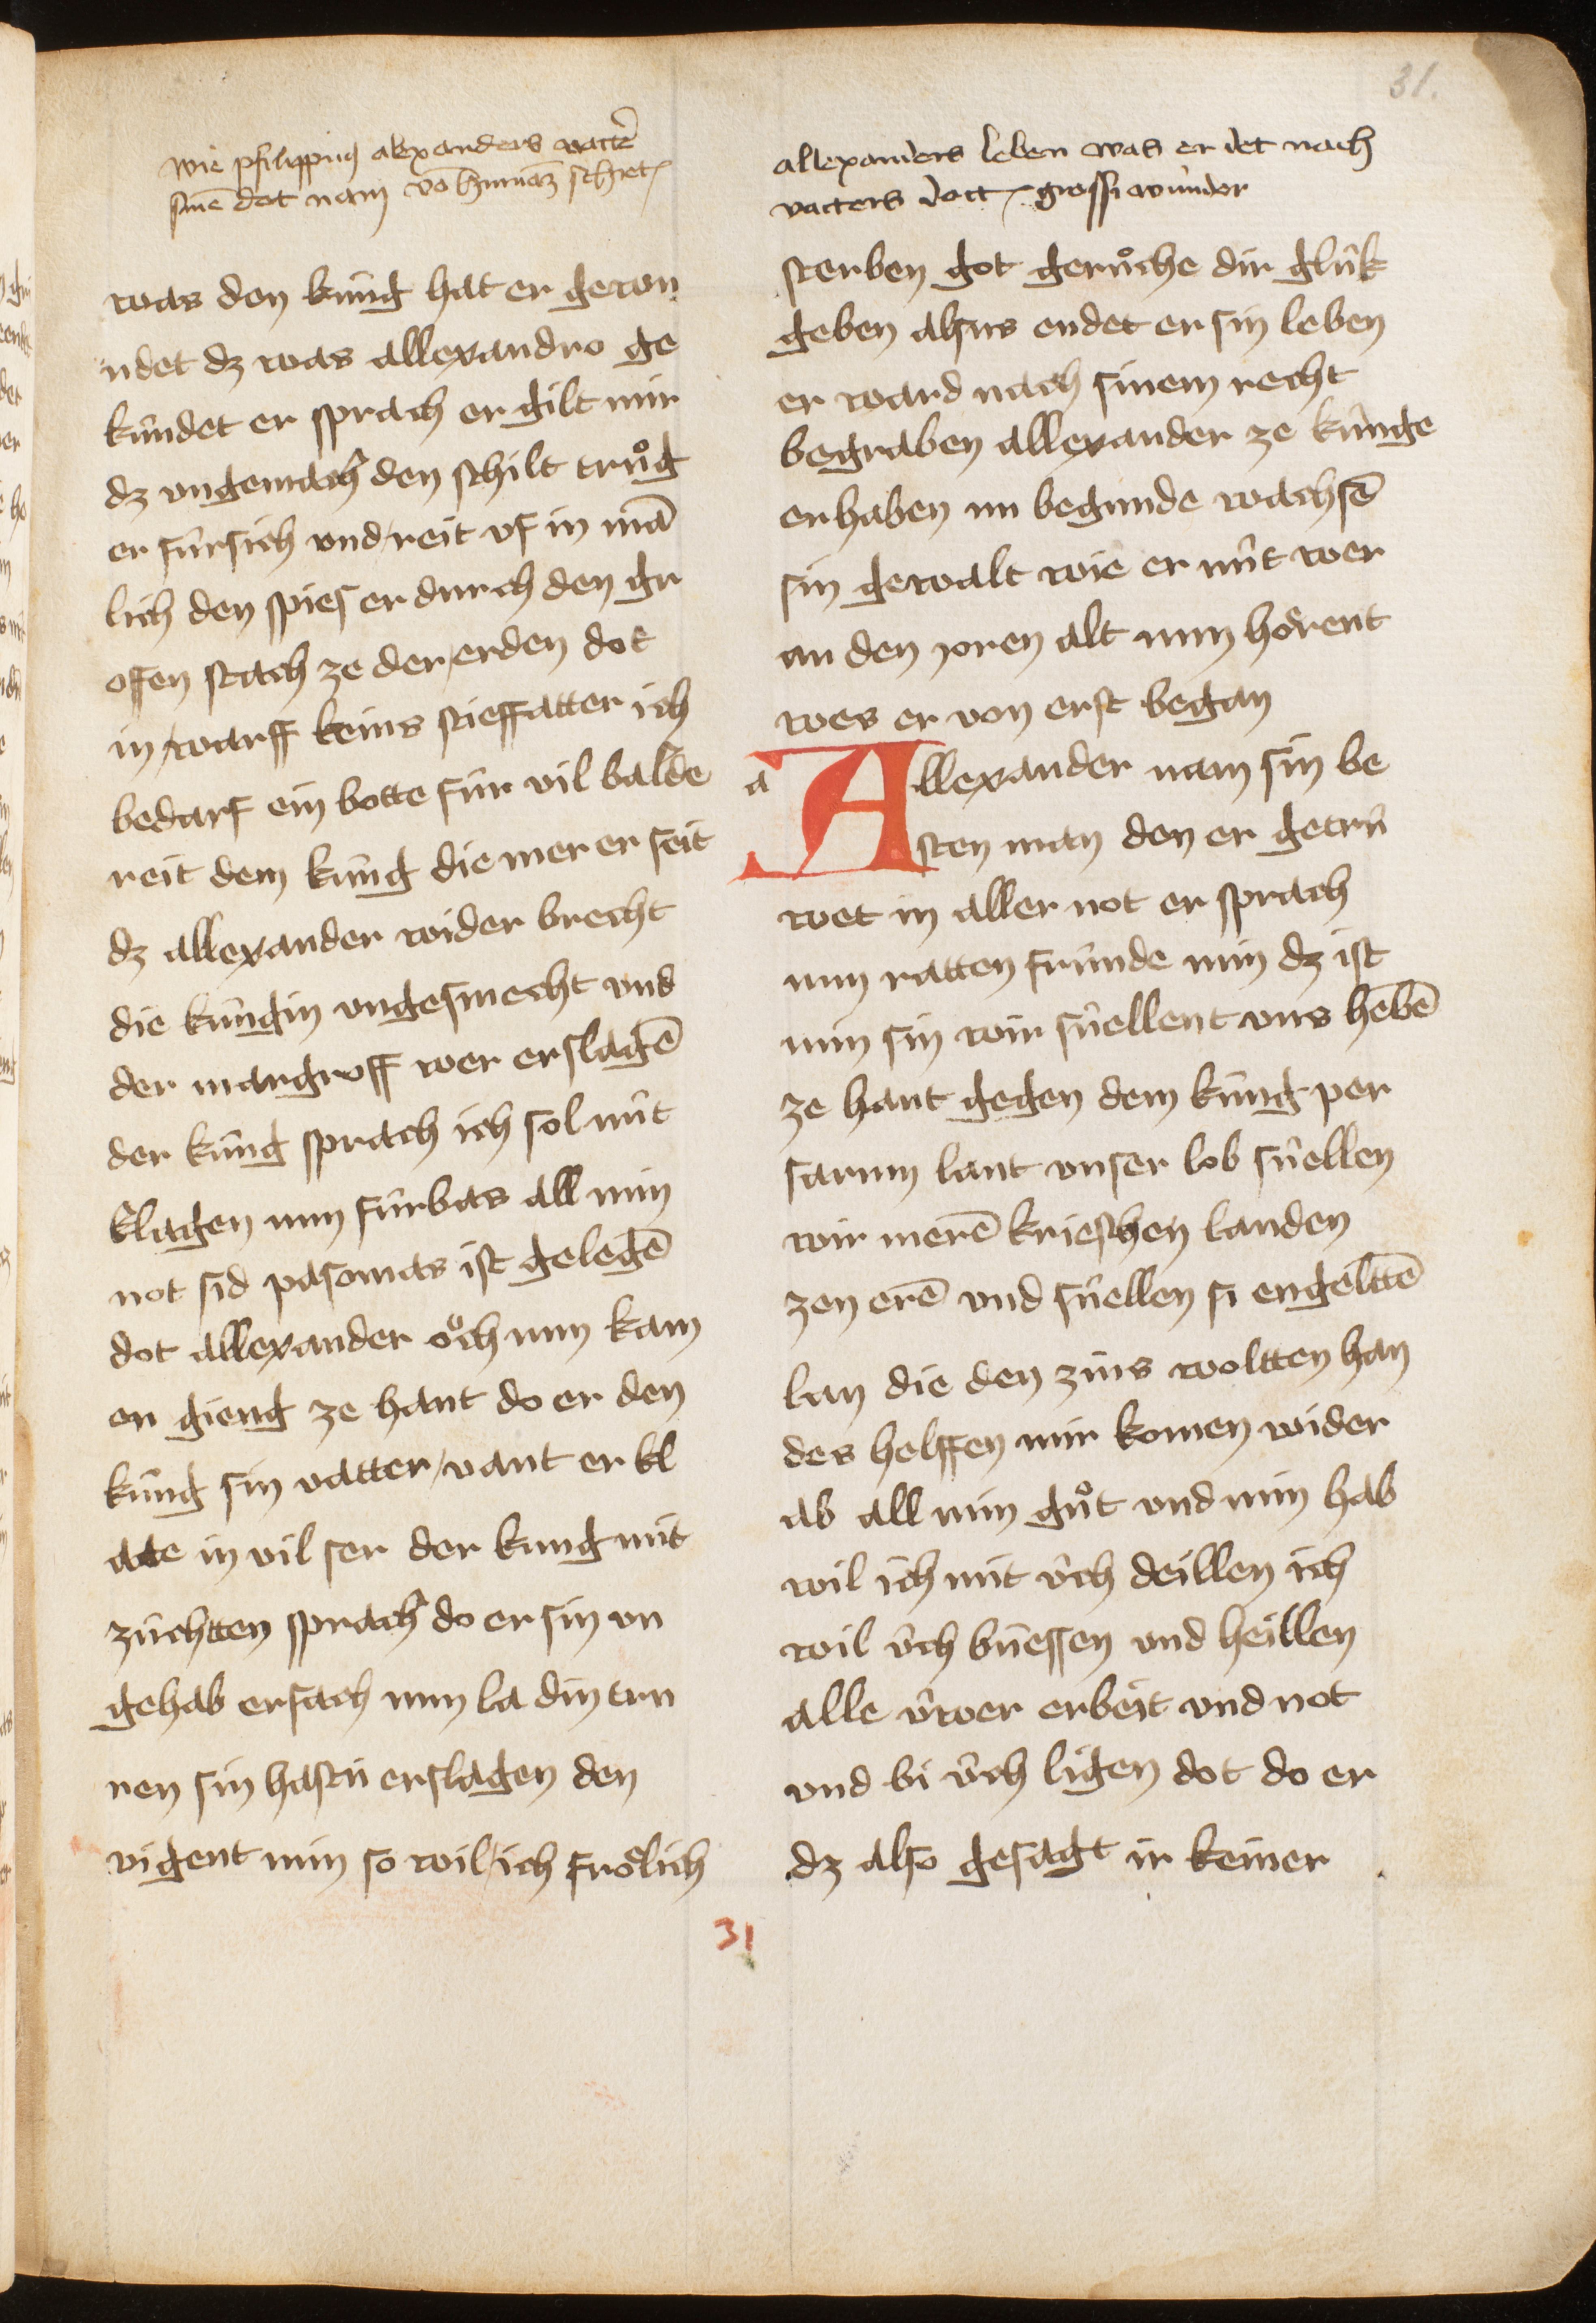 31.
wie philippus alexanders vatter̄
sinē dot nam
was den kúng hat er gewun
ndet dz was allexandro ge
kúndet er sprach er gilt mir
dz vngemach den schilt trůg
er fúrsich vnd reit vf in mā
lich den spies er durch den gr
offen stach ze der erden dot
in warff keins stieffatter ich
bedarf ein botte fúr vil balde
reit dem kúng die mer er seit
dz allexander wider brecht
die kúngin vngesmecht vnd
der margroff wer erslagē
der kúng sprach ich sol nút
klagen nun fúrbas all min
not sid pasomas ist gelegē
dot allexander ǒch nun kam
en gieng ze hant do er den
kúng sin vatter vant er kl
agte in vil ser der kung mit
zúchtten sprach do er sin vn
gehab ersach nun la din tru
ren sin hastu erslagen den
vigent min so wil ich frölich
allexanders leben was er det nach
vatters dott grossi wunder
sterben got gerůche dir glúk
geben alsus endet er sin leben
er ward nach sinem recht
begraben allexander ze kúnge
erhaben nu begunde wachsē
sin gewalt wie er nút wer
an den joren alt nun hörent
wes er von erst began
a
Allexander nam sin be
sten man den er getrú
wet in aller not er sprach
nun ratten frúnde min dz ist
min sin wir súellent vns hebē
ze hant gegen dem kúng per
sarum lant vnser lob súellen
wir merē krieschen landen
zen erē vnd súellen si engelttē
lan die den zins woltten han
des helffen mir komen wider
ab all min gůt vnd min hab
wil ich mit úch deillen ich
wil úch búessen vnd heillen
alle úwer erbeit vnd not
vnd bi úch ligen dot do er
dz also gesagt ir keiner
31